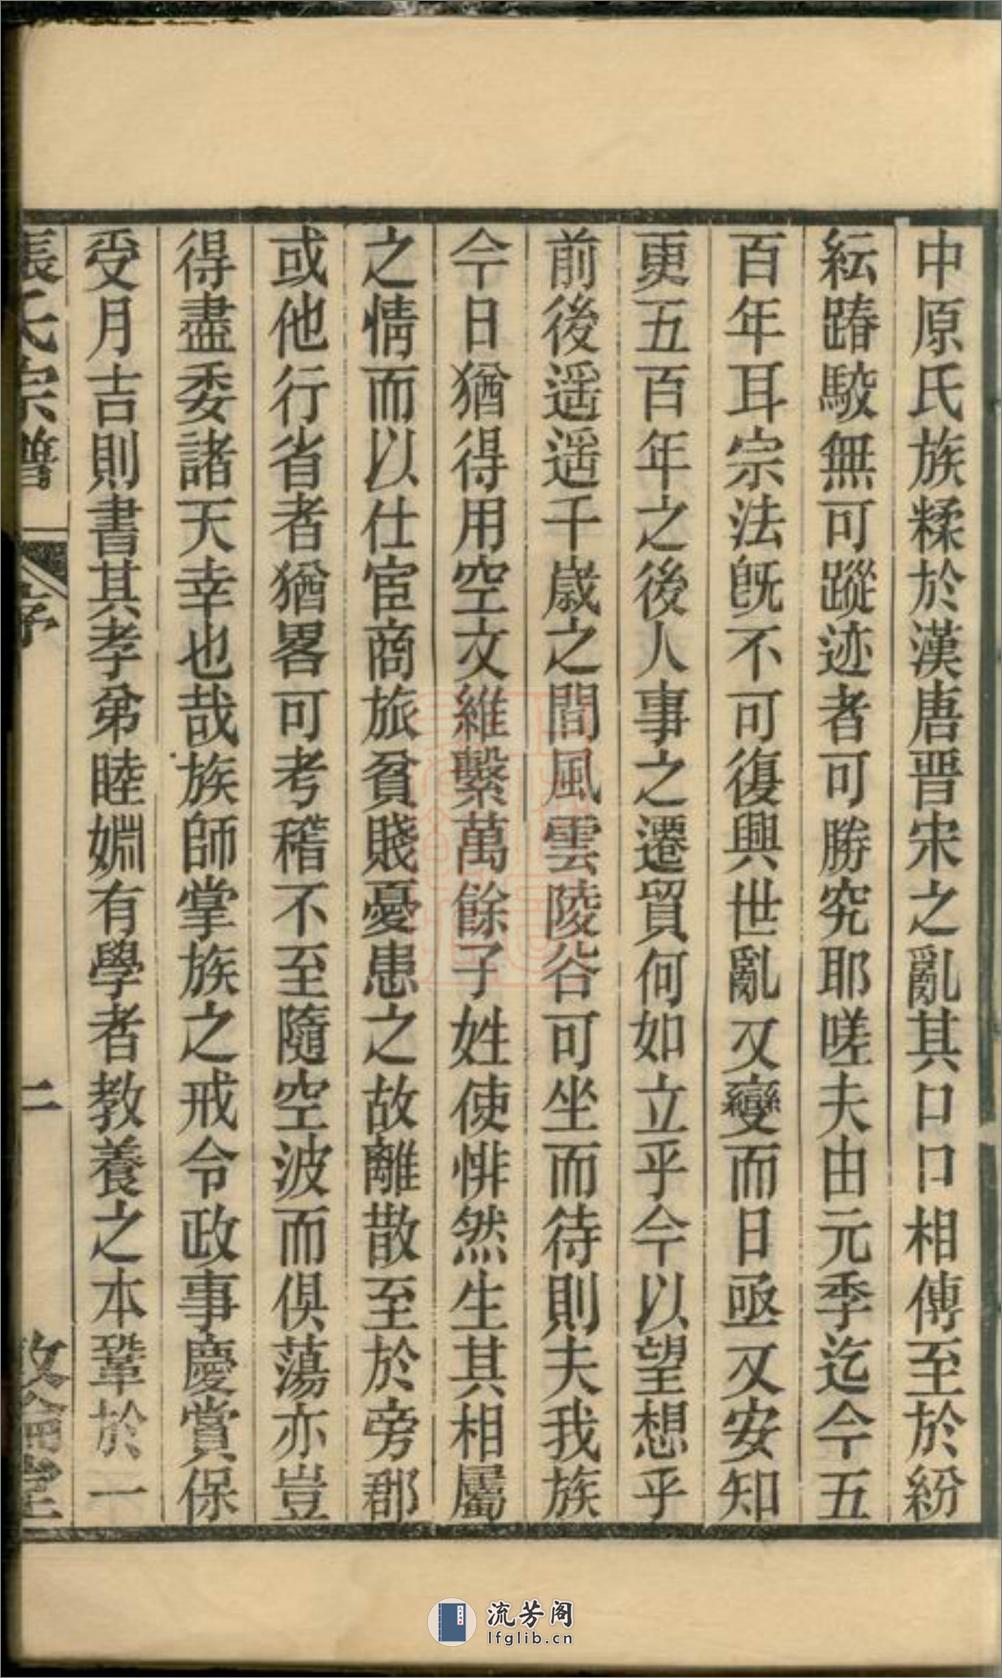 中原氏族糅於漢唐晋宋之亂其口口相傳至於紛
紜踳駮無可蹤迹者可勝究耶嗟夫由元季迄今五
百年耳宗法旣不可復興世亂又變而日亟又安知
更五百年之後人事之遷貿何如立乎今以望想乎
前後遥遥千歲之間風雲陵谷可坐而待則夫我族
今日猶得用空文維繫萬餘子姓使悱然生其相屬
之情而以仕宦商旅貧賤憂患之故離散至於旁郡
或他行省者猶畧可考稽不至隨空波而俱蕩亦豈
得盡委諸天幸也哉族師掌族之戒令政事慶賞保
受月吉則書其孝弟睦婣有學者教養之本鞏於一
張氏宗譜 序 二
流芳阁
lfglib.cn